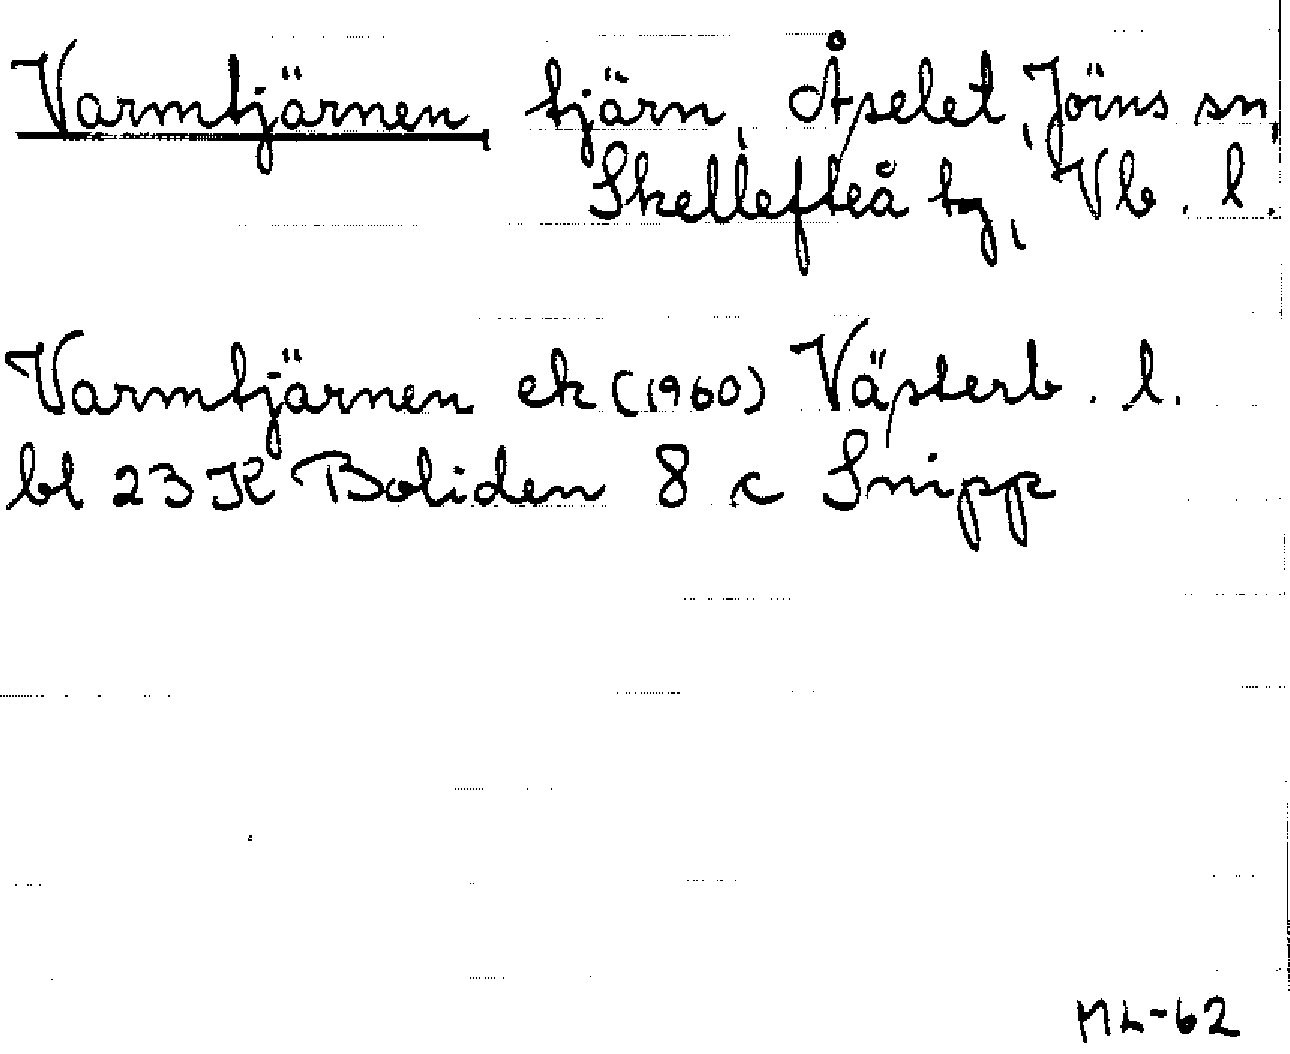 Varmtjärnen, tjärn, Åselet, Jörns sn,
Skellefteå tg, Vb. l.
Varmtjärnen ek (1960) Västerb. l.
bl 23 K Boliden 8 c Snipp
ML-62